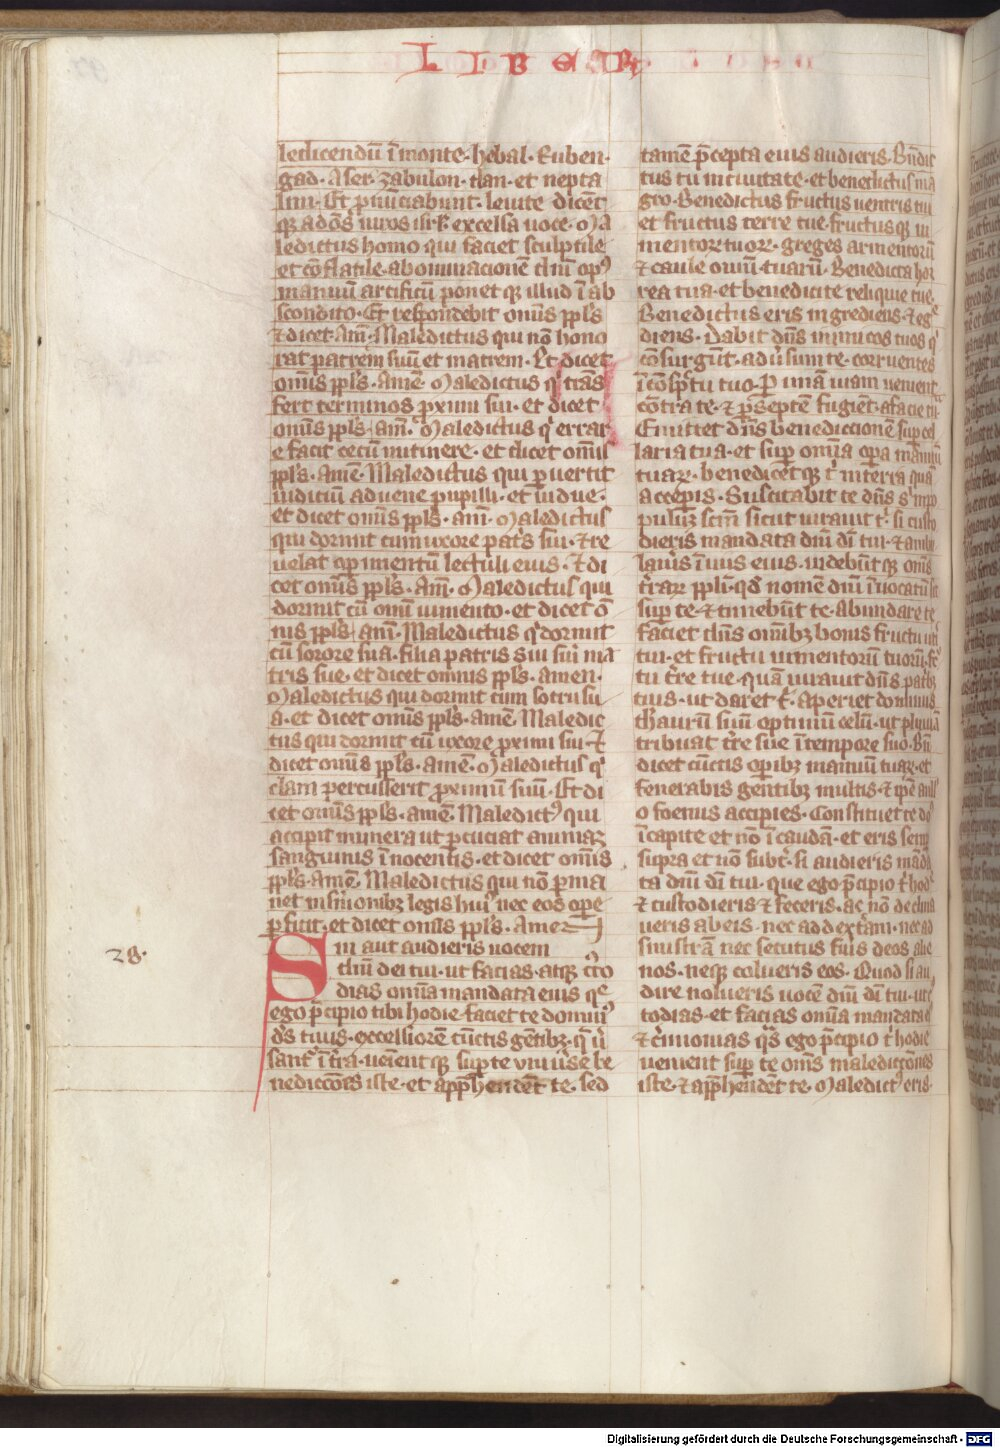 LIBER
ledicendū ī monte · hebal · Ruben ·
gad · Aser · zabulon · dan · et nepta
lim · Et p̄nūciabunt leuite dicēt
qƺ ad oēs uiros isrl̄ excelsa uoce · Ma
ledictus homo qui faciet sculptile
et cōflatile · abominacionē dn̄i opꝰ
manuū artificū ponet qƺ illud ī ab
scondito · Et respondebit omīs ppl̄s
⁊ dicet · Am̄ · Maledictus qui nō hono
rat patrem suū et matrem · Et dicet
omīs ppl̄s · Amē · Maledictus qⁱ trāns
fert terminos ꝓximi sui · et dicet
omīs ppl̄s · am̄ · Maledictus qⁱ errar
e facit cecū in itinere · et dicet omīs
ppl̄s · amē · Maledictus qui ꝑuertit
iudiciū aduene pupilli · et uidue ·
et dicet omīs ppl̄s · am̄ · Maledictus
qui dormit cum uxore pat̄s sui · ⁊ re
uelat oꝑimentū lectuli eius · ⁊ di
cet omīs ppl̄s · Am̄ · Maledictus qui
dormit cū omī iumento · et dicet ō
nis ppl̄s am̄ · Maledictus qⁱ dormit
cū sorore sua · filia patris sui siū ma
tris sue · et dicet omnis ppl̄s · amen ·
Maledictus qui dormit cum socru su
a · et dicet omīs ppl̄s · amē · Maledic
tus qui dormit cū uxore ꝓximi sui · ⁊
dicet omīs ppl̄s · amē · Maledictus qⁱ
clam percusserit ꝓximū suū · Et di
cet omīs ppl̄s · amē · Maledictꝰ qui
accipit munera ut ꝑcuciat animaƺ
sanguinis īnocentis · et dicet omīs
ppl̄s · Amē · Maledictus qui nō ꝑma
net in smonibƺ legis huiꝰ nec eos oꝑe
ꝑficit · et dicet omīs ppl̄s · Ame
28 ·
Sin aut audieris uocem
dn̄i dei tui · ut facias atqƺ c̄to
dias om̄a mandata eius qͤ
ego p̄cipio tibi hodie · faciet te dominꝰ
dꝰs tuus · excelliorē cunctis gētibƺ · qͥ ū
santr̄ ī t̄ra · ueīent qƺ suꝑ te vniūse be
nedicc̄ōis iste · et app̄hendēt te · sed
tamē p̄cepta eius audieris · Bn̄dic
tus tū in ciuitate · et benedictus in a
gro · Benedictus fructus uentris tui
et fructus terre tue · fructus qƺ iu
mentoꝝ tuoꝝ · greges armentorū
⁊ caule ouiū tuarū · Benedicta hor
rea tua · et benedicite reliquie tue ·
Benedictus eris ingrediens ⁊ eḡ
diens · Dabit dn̄s inimicos tuos qⁱ
cōsurgūt · aduūsum te · corruentes
ī cōspc̄tu tuo · P unam uiam uenient
cōtra te · ⁊ p septē fugiēt a facie tu
Emittet dn̄s benediccionē suꝑ cel
laria tua · et suꝑ omīa oꝑa manuū
tuaꝝ · benedicet qƺ t̄ in terra quā
acceꝑis · Suscitabit te dn̄s sⁱ in po
pulū scm̄ sicut iurauit t̄ · si custo
dieris mandata dn̄i dī tui · ⁊ ambu
laūis ī uiis eius · uidebūt qƺ omīs
t̄raꝝ ppl̄i · qd̄ nomē dn̄i īuocatū sit
suꝑ te · ⁊ timebūt te · abundare te
faciet dn̄s omībƺ bonis fructu uēt
tui · et fructu iumentorū tuorū · fc̄
tu t̄re tue · quā iurauit dn̄s patⁱbƺ
tuis · ut daret t̄ · Aperiet dominus
thaurū suū optimū celū · ut pluuiā
tribuat t̄re sue ī tempore suo · Bn̄
dicet cūctis oꝑibƺ manuū tuaꝝ · et
fenerabis gentibƺ multis · ⁊ ip̄e a null
o foenus accipies · Constituet te dn̄s
ī capite et nō ī caudā · et eris semꝑ
supra et nō subt̄ · si audieris mādā
ta dn̄i dī tui · que ego p̄cipio t̄ hodͤ
⁊ custodieris ⁊ feceris · ac nō declina
ueris ab eis · nec ad dext̄am · nec ad
sinistrā nec secutus fūis deos alie
nos · neqƺ colueris eos · Quod si au
dire nolueris uocē dn̄i dī tui · ut c̄
todias · et facias om̄a mandata eꝰ
⁊ c̄imonias qͣs ego p̄cipio t̄ hodie
uenient suꝑ te omīs malediccōnes
iste · ⁊ app̄hendēt te · Maledictꝰ eris ·
Digitalisierung gefördert durch die Deutsche Forschungsgemeinschaft - DFG